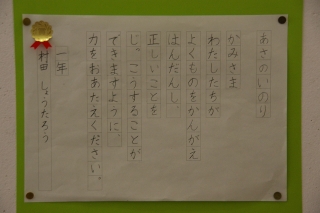 あさのいのり
かみさま
わたしたちが
よくものをかんがえ
はんだんし、
正しいことを
じっこうすることが
できますように、
力をおあたえください。
一年
村田 しょうたろう